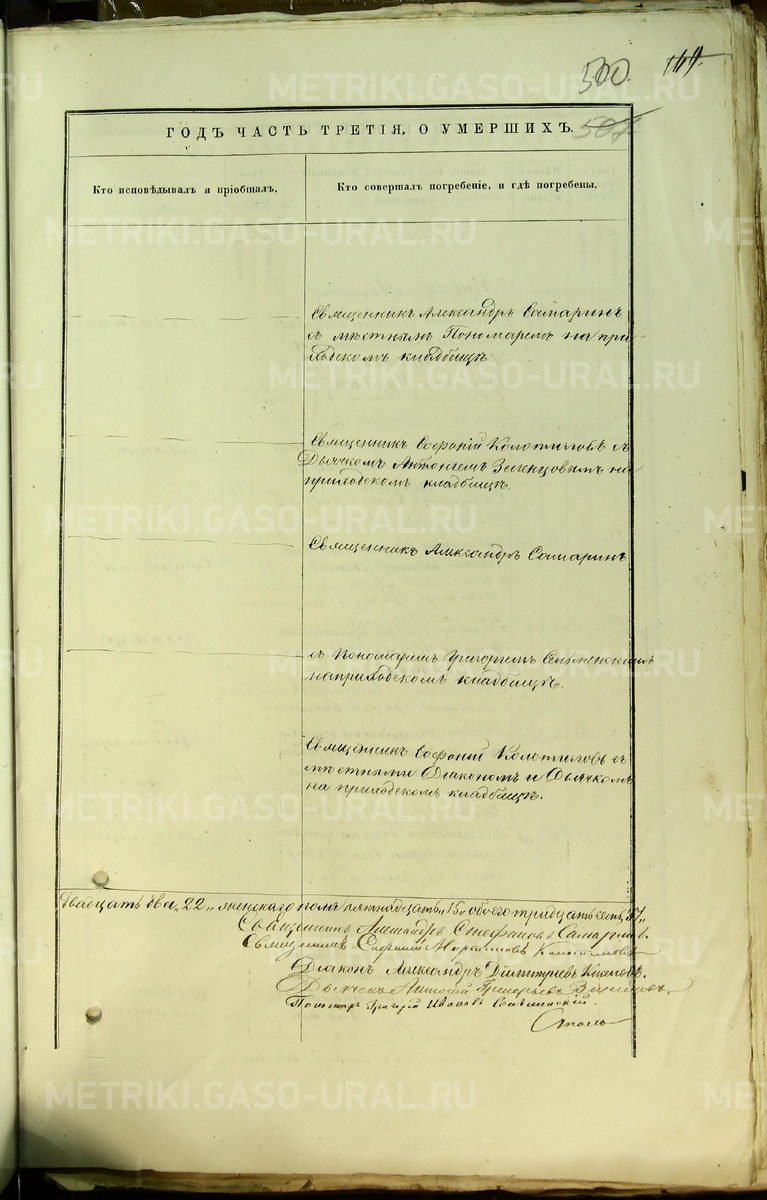 500.
164.
507
ГОДЪ ЧАСТЬ ТРЕТІЯ, О УМЕРШИХЪ.
Кто исповѣдывалъ и пріобщалъ.
Кто совершалъ погребеніе, и гдѣ погребены.
Священникъ Александръ Самаринъ
съ мѣстнымъ Пономаремъ на при-
ходскомъ кладбищѣ
Священникъ Софоній Колотиловъ съ
Дьячкомъ на
приходскомъ кладбищѣ.
Священникъ Александръ Самаринъ
съ Пономаремъ Григоріемъ
на приходскомъ кладбищѣ.
Священникъ Софоній Колотиловъ съ
мѣстными Діакономъ и Дьячкомъ
на приходскомъ кладбищѣ.
двадцать два „22„ женскаго пола пятнадцать „15„ обоего тридцать семь „37„
Священникъ Александръ Стефановъ Самаринъ.
Священникъ Софоній Колотиловъ
Діаконъ Александръ Димитріевъ
Дьячекъ Григорьевъ
Пономарь Григорій Ивановъ
METRIKI.GASO-URAL.RU